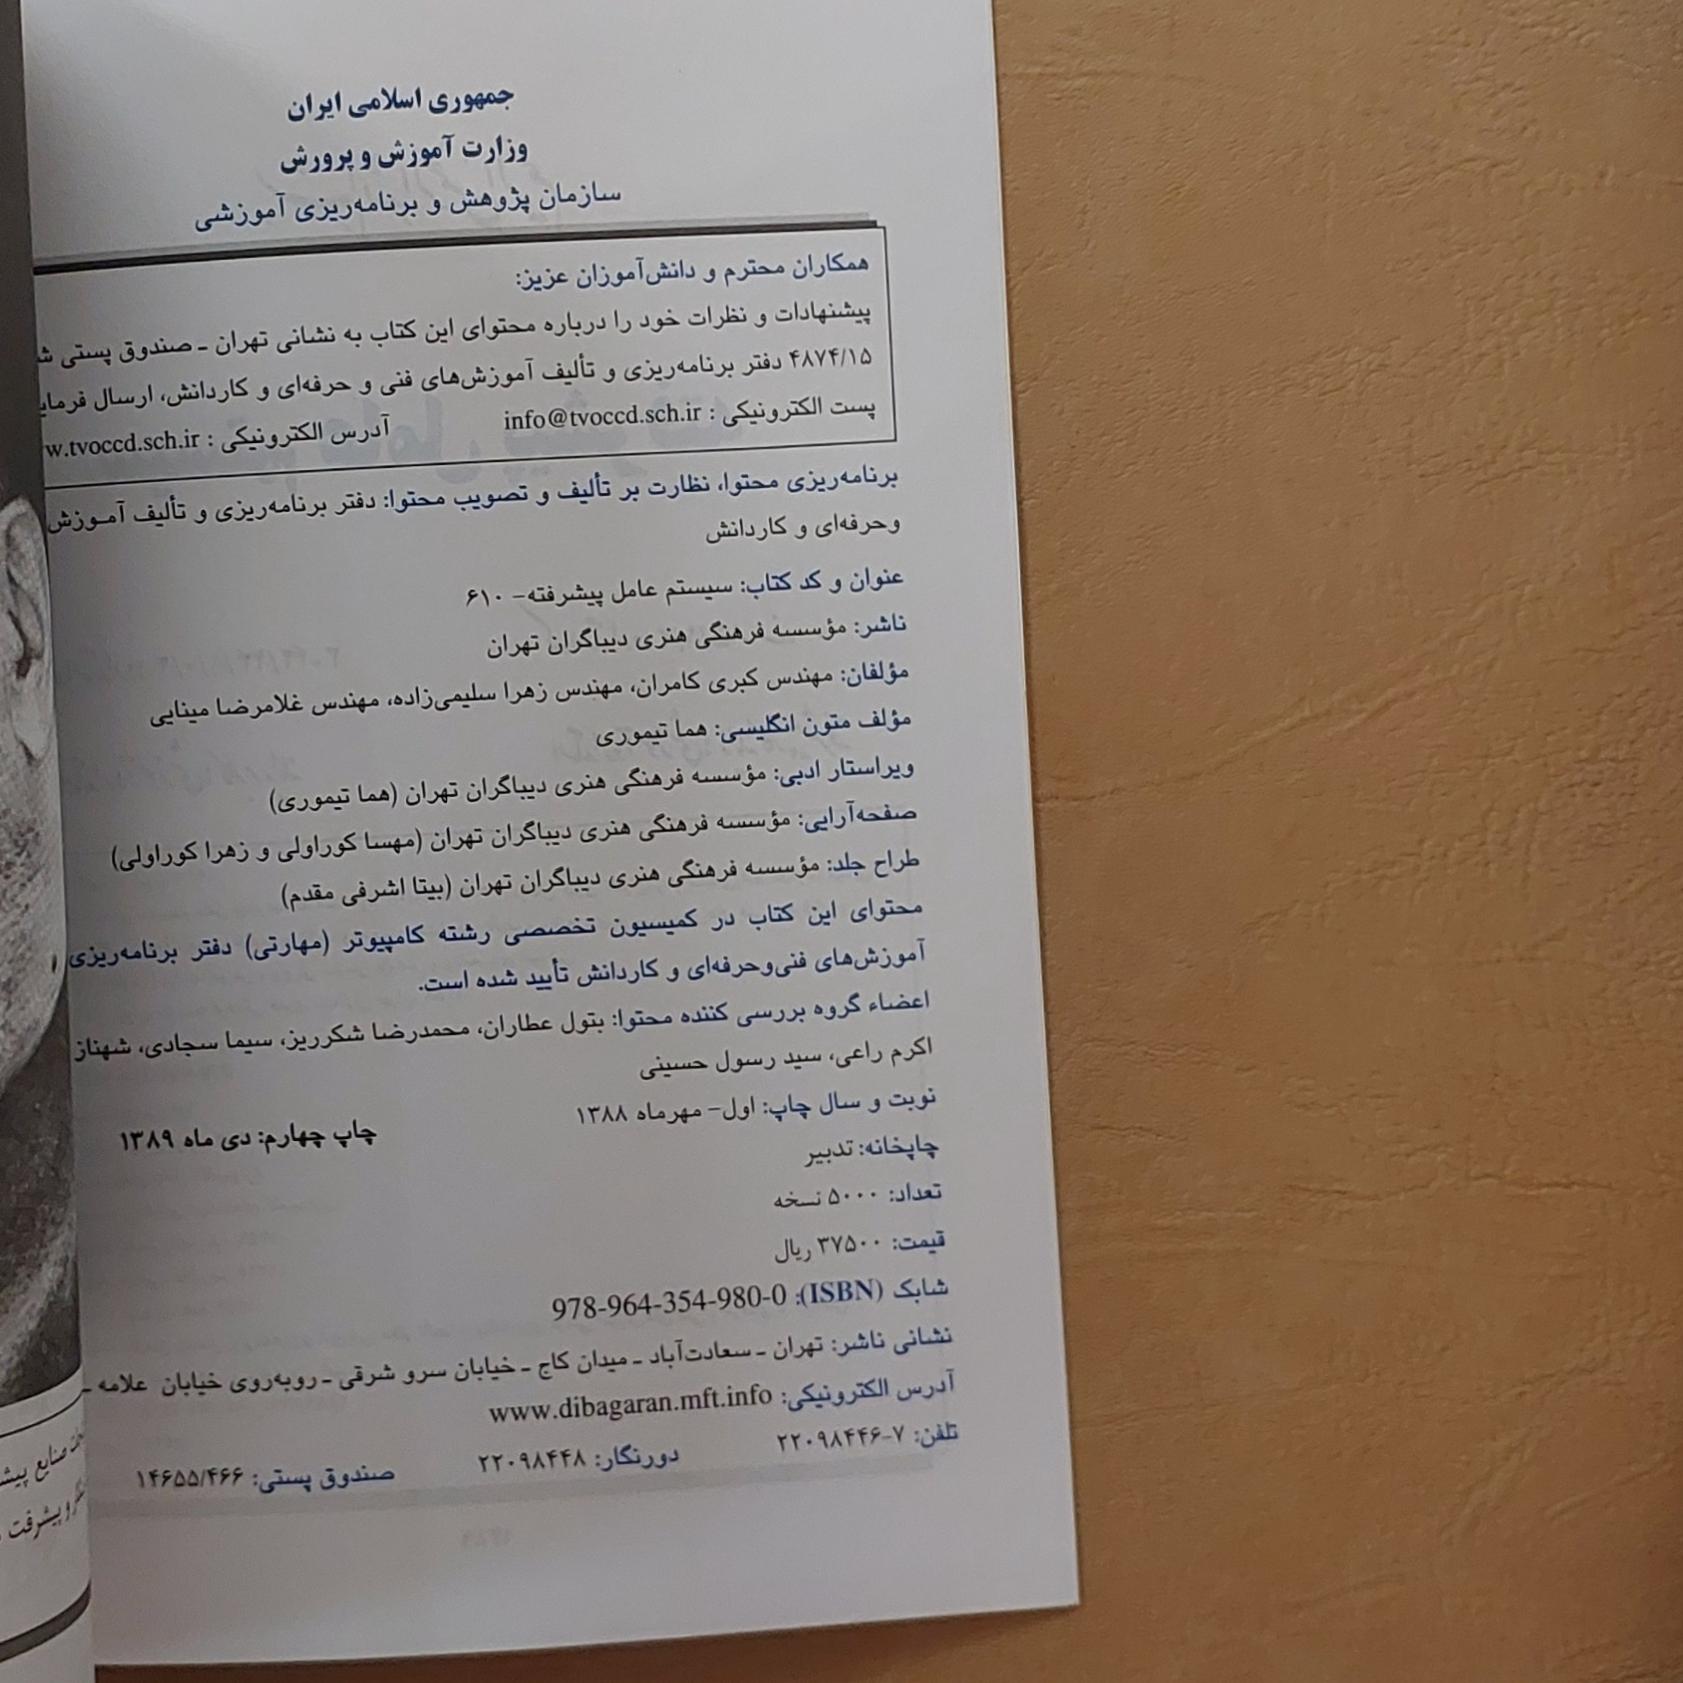 جمهوری اسلامی ایران
وزارت آموزش و پرورش
سازمان پژوهش و برنامه‌ریزی آموزشی
همکاران محترم و دانش‌آموزان عزیز:
پیشنهادات و نظرات خود را درباره محتوای این کتاب به نشانی تهران ـ صندوق پستی
۴۸۷۴/۱۵ دفتر برنامه‌ریزی و تألیف آموزش‌های فنی و حرفه‌ای و کاردانش، ارسال
پست الکترونیکی : info@tvoccd.sch.ir آدرس الکترونیکی : w.tvoccd.sch.ir
برنامه‌ریزی محتوا، نظارت بر تألیف و تصویب محتوا: دفتر برنامه‌ریزی و تألیف آموزش
وحرفه‌ای و کاردانش
عنوان و کد کتاب: سیستم عامل پیشرفته- ۶۱۰
ناشر: مؤسسه فرهنگی هنری دیباگران تهران
مؤلفان: مهندس کبری کامران، مهندس زهرا سلیمی‌زاده، مهندس غلامرضا مینایی
مؤلف متون انگلیسی: هما تیموری
ویراستار ادبی: مؤسسه فرهنگی هنری دیباگران تهران (هما تیموری)
صفحه‌آرایی: مؤسسه فرهنگی هنری دیباگران تهران (مهسا کوراولی و زهرا کوراولی)
طراح جلد: مؤسسه فرهنگی هنری دیباگران تهران (بیتا اشرفی مقدم)
محتوای این کتاب در کمیسیون تخصصی رشته کامپیوتر (مهارتی) دفتر برنامه‌ریزی
آموزش‌های فنی‌وحرفه‌ای و کاردانش تأیید شده است.
اعضاء گروه بررسی کننده محتوا: بتول عطاران، محمدرضا شکرریز، سیما سجادی، شهناز
اکرم راعی، سید رسول حسینی
نوبت و سال چاپ: اول- مهرماه ۱۳۸۸ چاپ چهارم: دی ماه ۱۳۸۹
چاپخانه: تدبیر
تعداد: ۵۰۰۰ نسخه
قیمت: ۳۷۵۰۰ ریال
شابک (ISBN): 978-964-354-980-0
نشانی ناشر: تهران ـ سعادت‌آباد ـ میدان کاج ـ خیابان سرو شرقی ـ روبه‌روی خیابان علامه ـ
آدرس الکترونیکی: www.dibagaran.mft.info
تلفن: ۷-۲۲۰۹۸۴۴۶ دورنگار: ۲۲۰۹۸۴۴۸ صندوق پستی: ۱۴۶۵۵/۴۶۶
صنایع
و پیشرفت